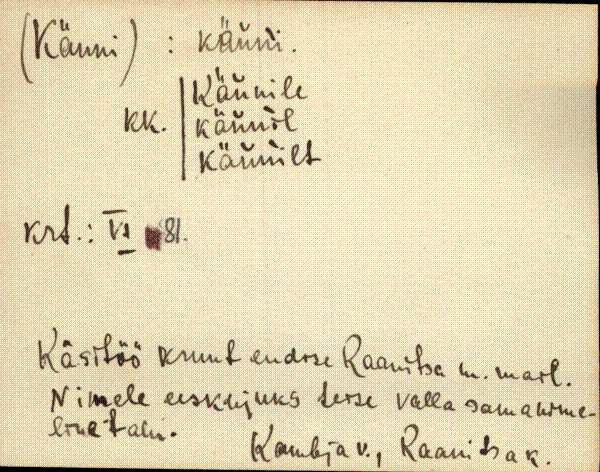 (Känni) : känni.
kk. Kännile
kännil
kännilt
krt.: VI 81.
Käsitöö krunt endise Raanitsa m. maal.
Nimele eeskujuks teise valla samanime-
line talu.
Kambja v., Raanitsa k.